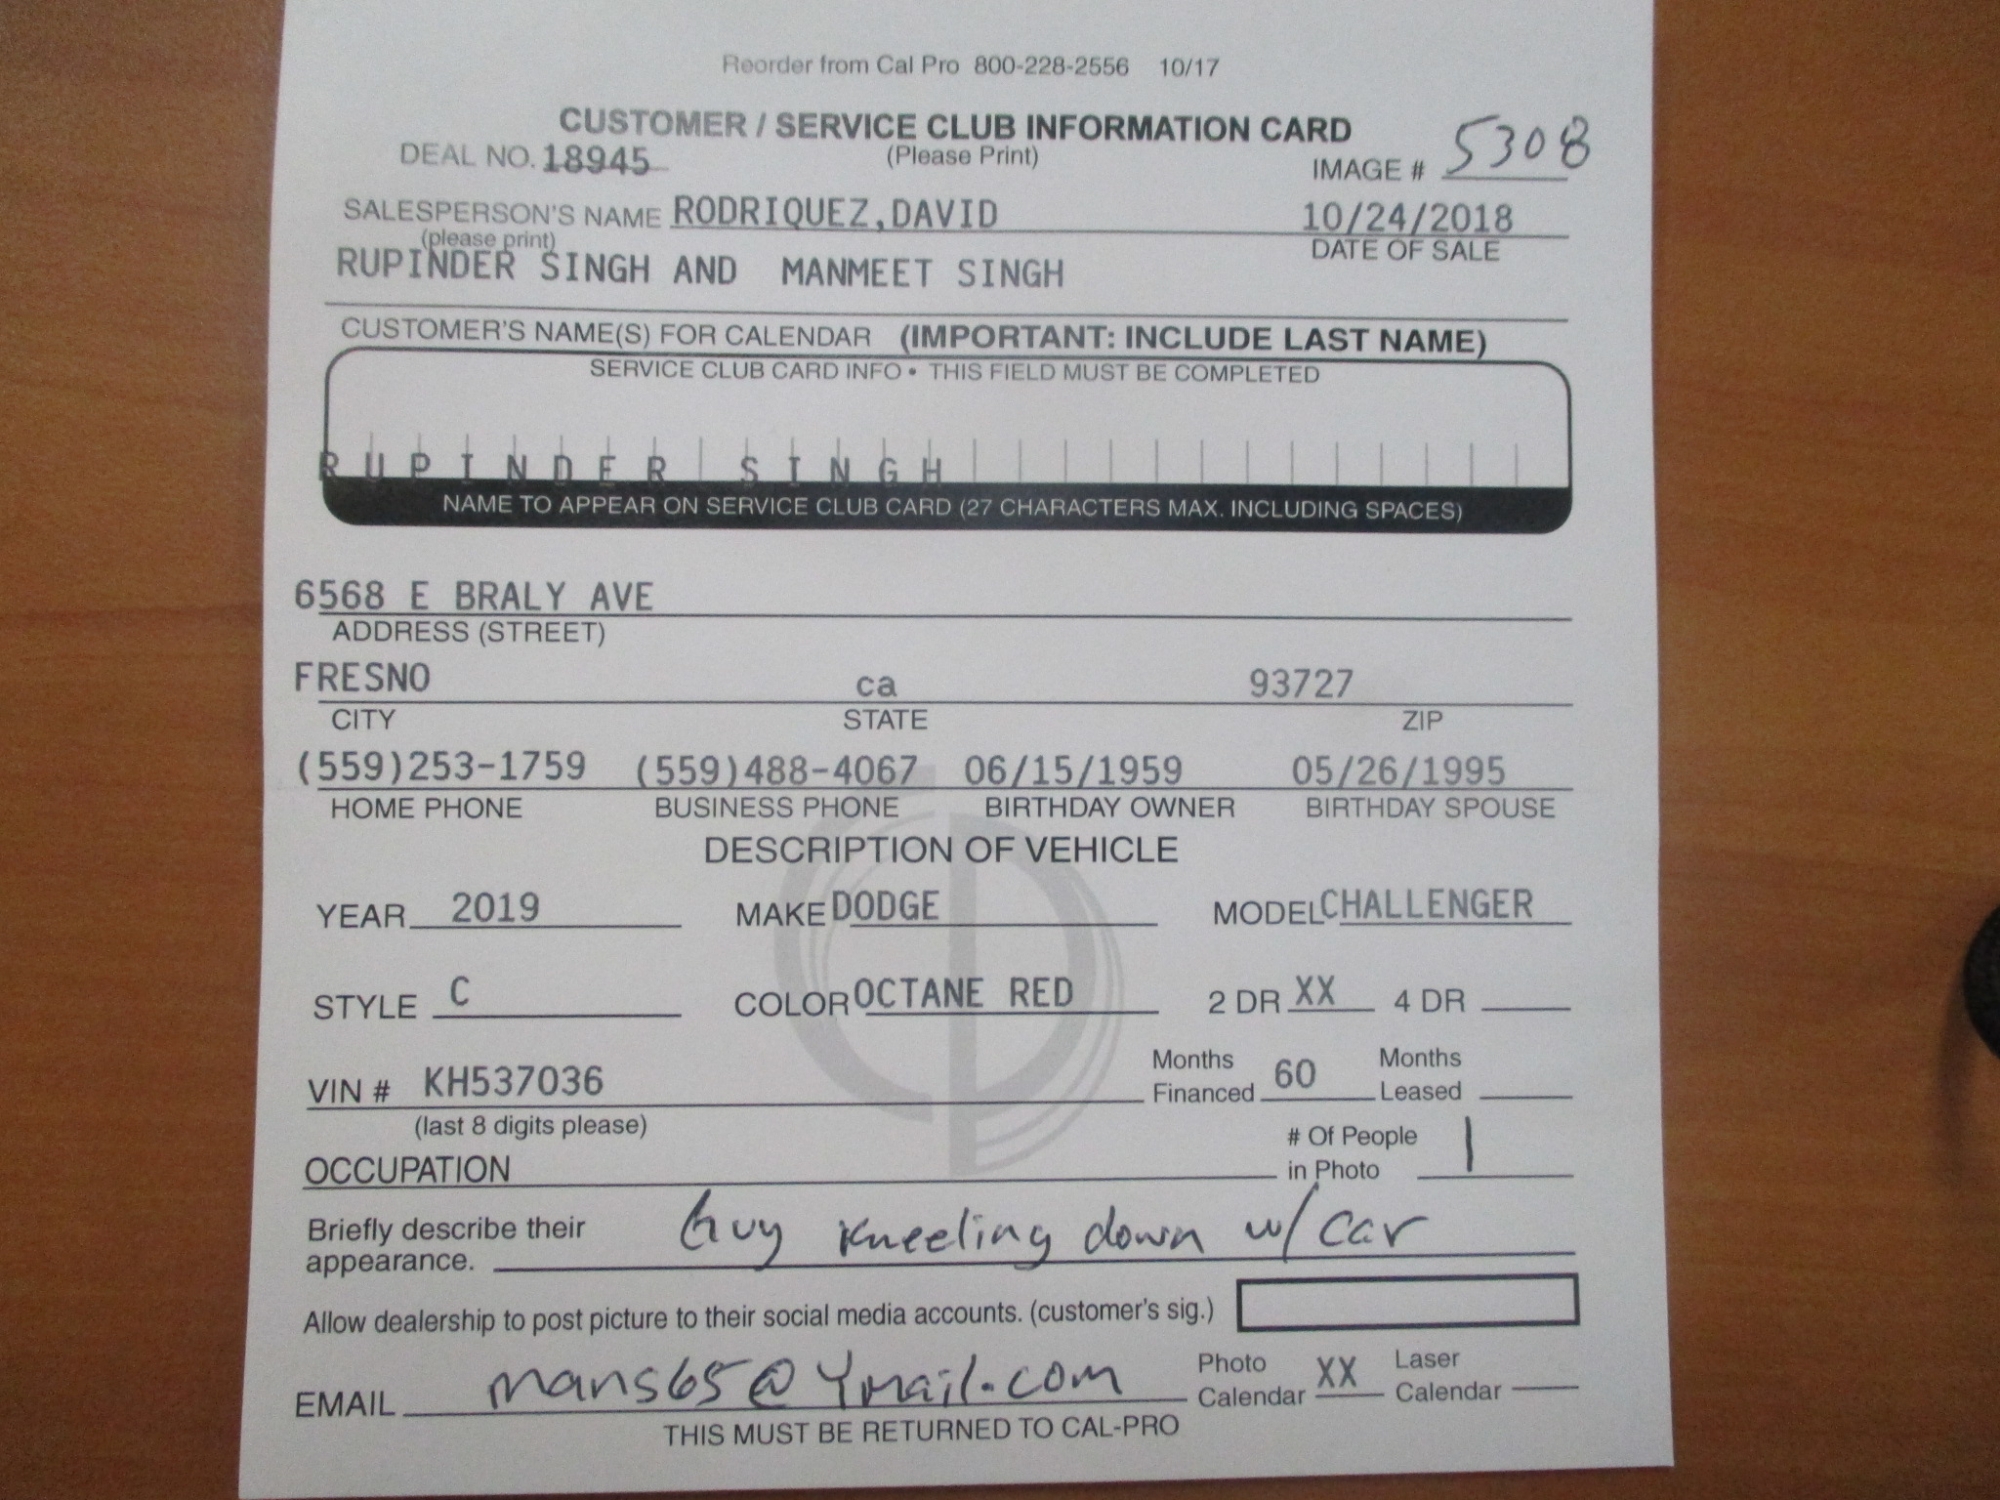 Reorder from Cal Pro 800-228-2556 10/17
CUSTOMER / SERVICE CLUB INFORMATION CARD
DEAL NO. 18945 (Please Print) IMAGE # 5308
SALESPERSON'S NAME RODRIQUEZ,DAVID 10/24/2018
(please print) DATE OF SALE
RUPINDER SINGH AND MANMEET SINGH
CUSTOMER'S NAME(S) FOR CALENDAR (IMPORTANT: INCLUDE LAST NAME)
SERVICE CLUB CARD INFO • THIS FIELD MUST BE COMPLETED
RUPINDER SINGH
NAME TO APPEAR ON SERVICE CLUB CARD (27 CHARACTERS MAX. INCLUDING SPACES)
6568 E BRALY AVE
ADDRESS (STREET)
FRESNO ca 93727
CITY STATE ZIP
(559)253-1759 (559)488-4067 06/15/1959 05/26/1995
HOME PHONE BUSINESS PHONE BIRTHDAY OWNER BIRTHDAY SPOUSE
DESCRIPTION OF VEHICLE
YEAR 2019 MAKE DODGE MODEL CHALLENGER
STYLE C COLOR OCTANE RED 2 DR XX 4 DR
VIN # KH537036 Months Financed 60 Months Leased
(last 8 digits please)
OCCUPATION # Of People in Photo 1
Briefly describe their appearance. Guy kneeling down w/ car
Allow dealership to post picture to their social media accounts. (customer's sig.)
EMAIL mans65@Ymail.com Photo Calendar XX Laser Calendar
THIS MUST BE RETURNED TO CAL-PRO